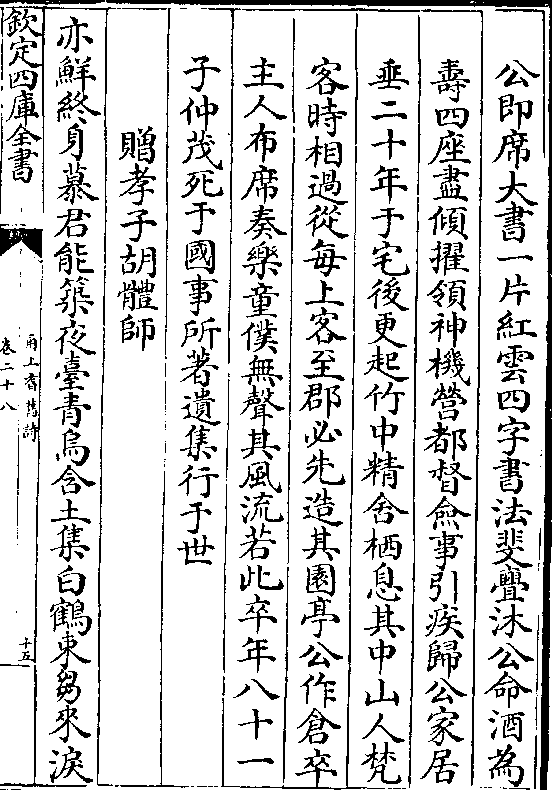 公即席大書一片紅雲四字書法斐亹沐公命酒為
壽四座盡傾擢領神機營都督僉事引疾歸公家居
垂二十年于宅後更起竹中精舍栖息其中山人梵
客時相過從每上客至郡必先造其園亭公作倉卒
主人布席奏樂童僕無聲其風流若此卒年八十一
子仲茂死于國事所著遺集行于世
贈孝子胡體師
亦鮮終身慕君能築夜臺青烏含土集白鶴東芻來淚
欽定四庫全書
甬上耆舊詩
卷二十八
十五